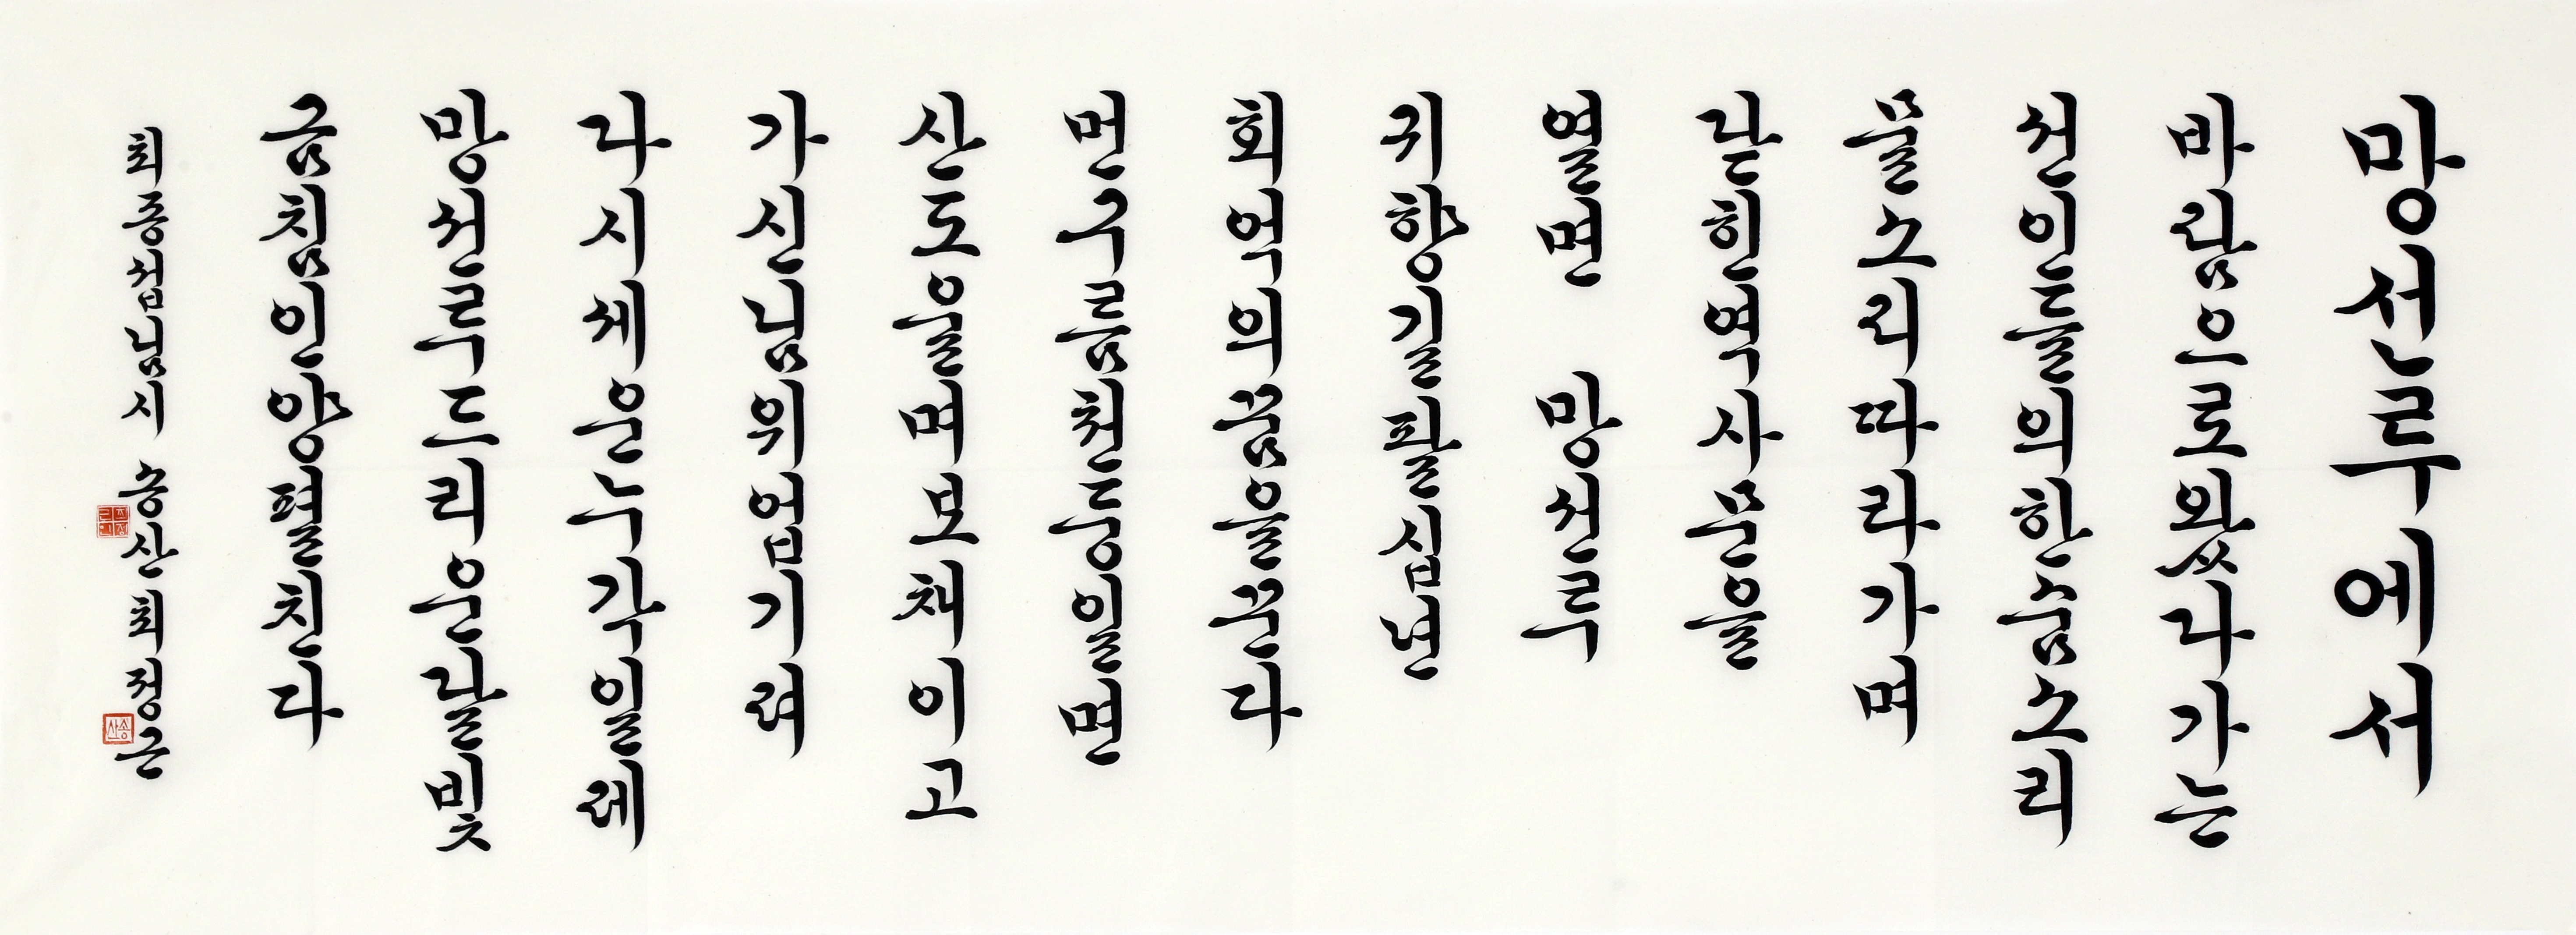 망선루에서
바람으로왔다가는
선인들의한숨소리
물소리따라가며
닫힌역사문을
열면 망선루
귀향길팔십년
회억의꿈을꾼다
먼구름천둥일면
산도울며보채이고
가신님위업기려
다시세운누각일레
망선루드리운달빛
금침인양펼친다
최종섭님시 송산최정근
최정근인
송산